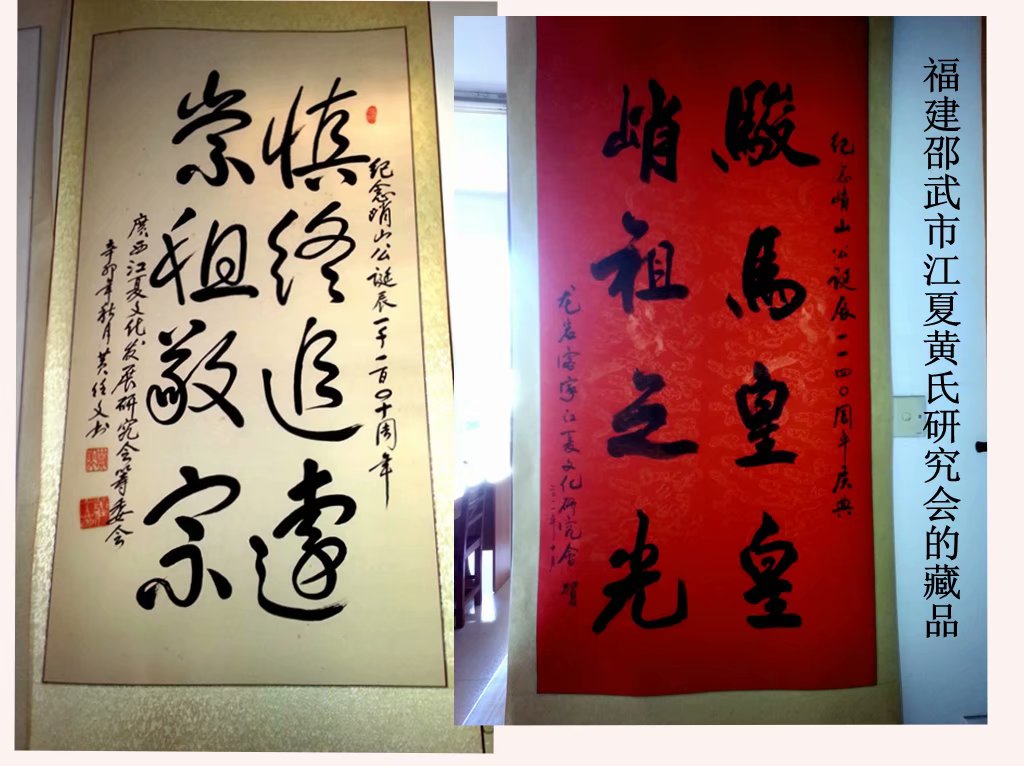 福建邵武市江夏黄氏研究会的藏品
纪念峭山公诞辰一一四〇周年庆典
駿馬皇皇
峭祖之光
龙岩客家江夏文化研究會賀
二〇一一年十月
纪念峭山公诞辰一千一百〇十周年
慎终追遠
崇祖敬宗
廣西江夏文化发展研究会筹委会
辛卯年秋月黄任文书